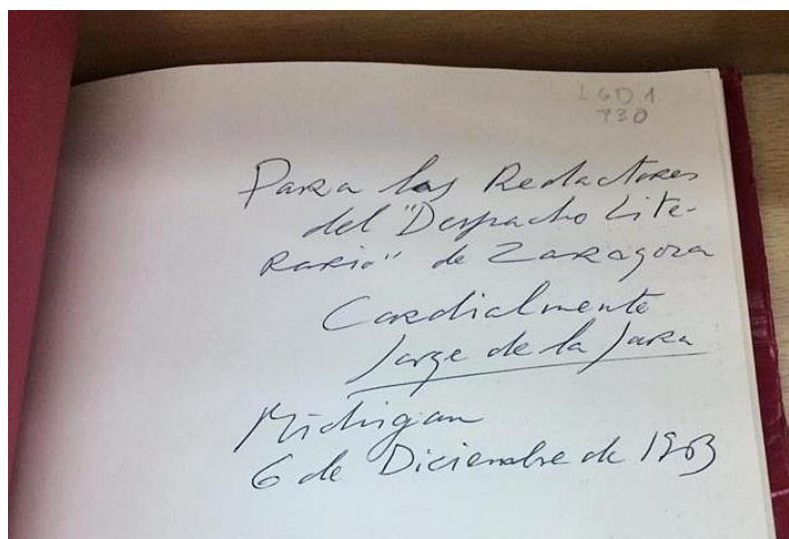 LGD 1
930
Para los Redactores
del "Despacho Lite-
rario" de Zaragoza
Cordialmente
Jorge de la Jara
Michigan
6 de Diciembre de 1963